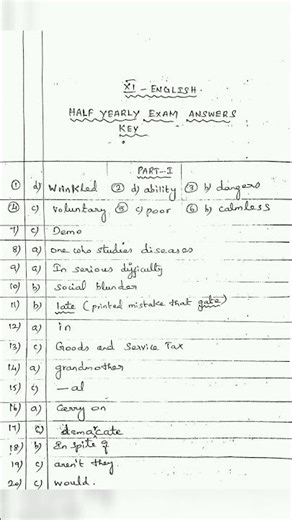 XI - ENGLISH
HALF YEARLY EXAM ANSWERS
KEY
PART-I
① d) Wrinkled ② d) ability ③ b) dangers
④ c) Voluntary ⑤ c) poor ⑥ b) calmless
7) c) Demo
8) a) One who studies diseases
9) a) In serious difficulty
10) b) social blunder
11) b) late (printed mistake that gate)
12) a) in
13) c) Goods and Service Tax
14) a) grandmother
15) c) -al
16) a) Carry on
17) c) demarcate
18) b) In spite of
19) c) aren't they
20) c) would.